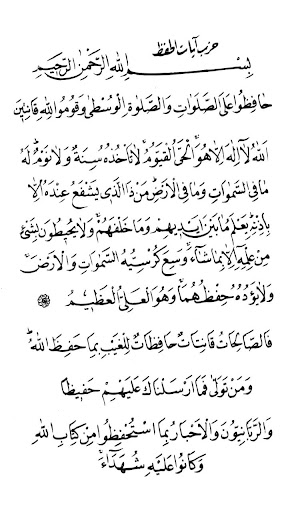 حزب آيات الحفظ
بِسْمِ اللهِ الرَّحْمٰنِ الرَّحِيمِ
حَافِظُوا عَلَى الصَّلَوَاتِ وَالصَّلٰوةِ الْوُسْطٰى وَقُومُوا لِلّٰهِ قَانِتِينَ
اَللهُ لَآ اِلٰهَ اِلَّا هُوَ اَلْحَىُّ الْقَيُّومُ لَا تَأْخُذُهُ سِنَةٌ وَلَا نَوْمٌ لَهُ
مَا فِى السَّمٰوَاتِ وَمَا فِى الْاَرْضِ مَنْ ذَا الَّذٖى يَشْفَعُ عِنْدَهُ اِلَّا
بِاِذْنِهٖ يَعْلَمُ مَا بَيْنَ اَيْدٖيهِمْ وَمَا خَلْفَهُمْ وَلَا يُحٖيطُونَ بِشَىْءٍ
مِنْ عِلْمِهٖ اِلَّا بِمَا شَاءَ وَسِعَ كُرْسِيُّهُ السَّمٰوَاتِ وَالْاَرْضَ
وَلَا يَؤُدُهُ حِفْظُهُمَا وَهُوَ الْعَلِىُّ الْعَظِيمُ
فَالصَّالِحَاتُ قَانِتَاتٌ حَافِظَاتٌ لِلْغَيْبِ بِمَا حَفِظَ اللهُ
وَمَنْ تَوَلّٰى فَمَا اَرْسَلْنَاكَ عَلَيْهِمْ حَفِيظًا
وَالرَّبَّانِيُّونَ وَالْاَحْبَارُ بِمَا اسْتُحْفِظُوا مِنْ كِتَابِ اللهِ
وَكَانُوا عَلَيْهِ شُهَدَاءَ